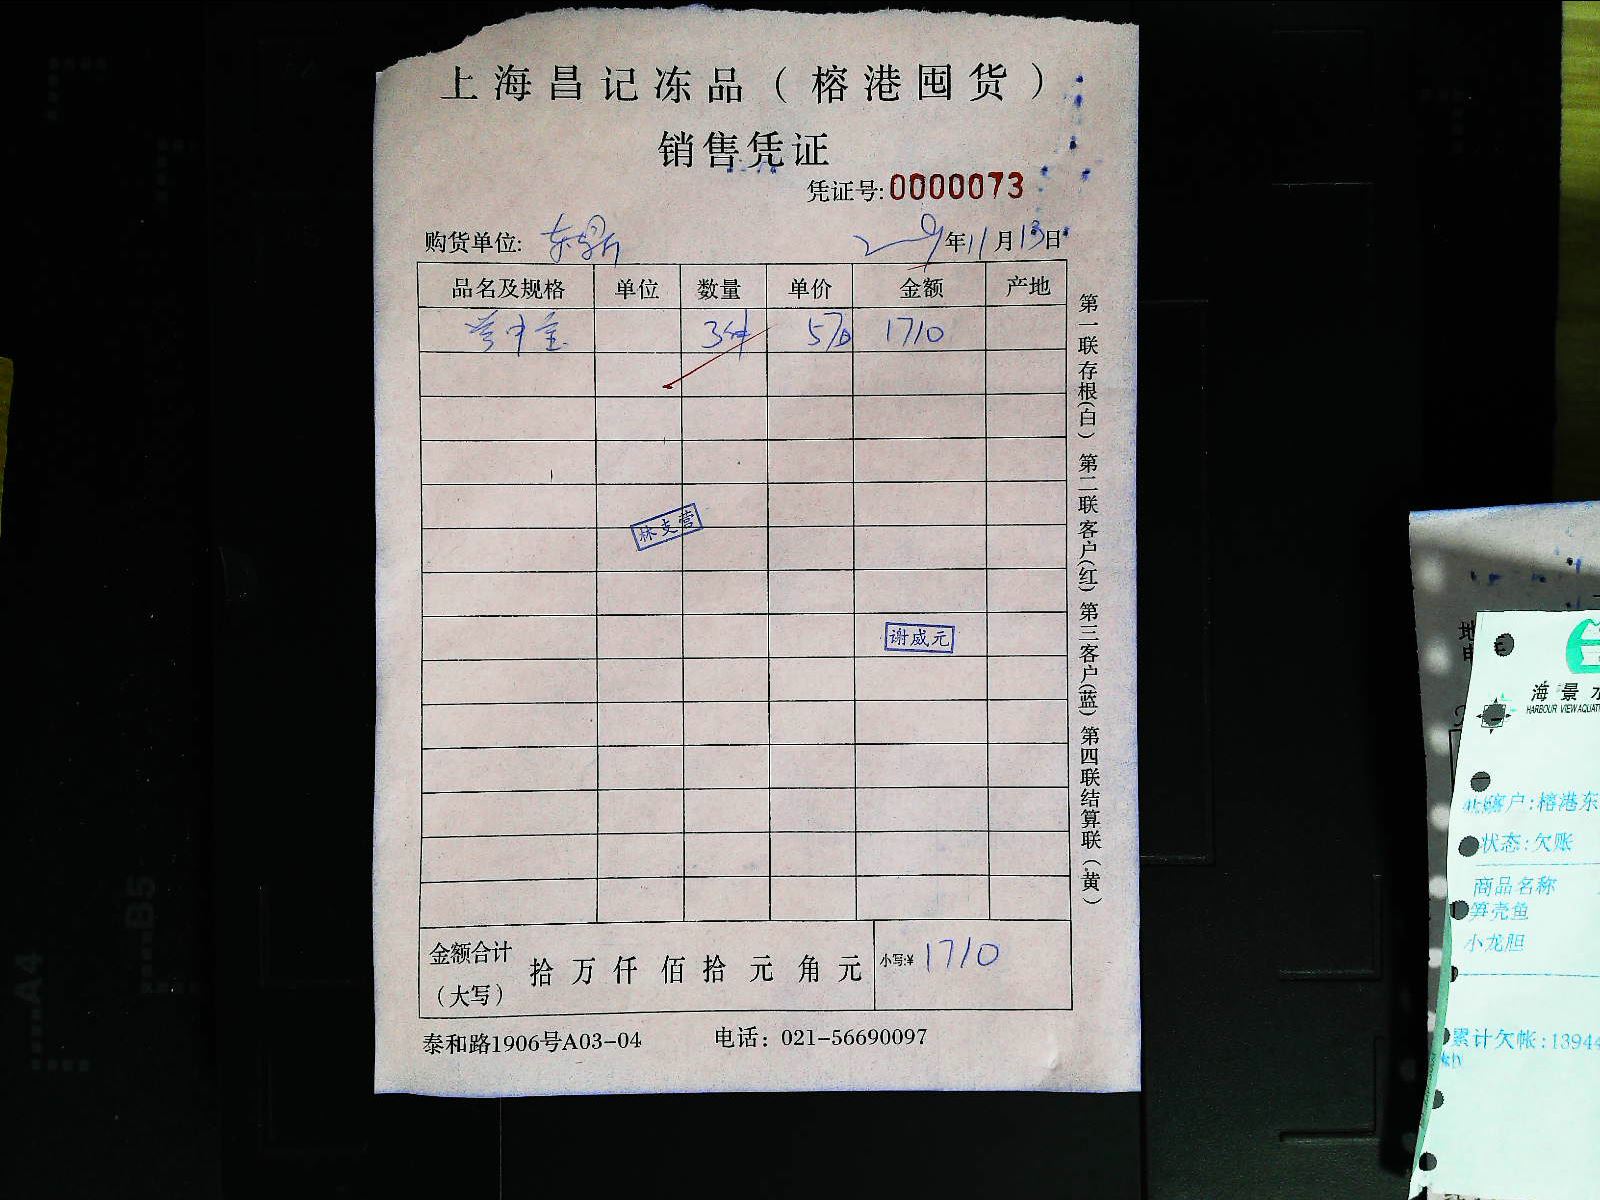 上海昌记冻品（榕港囤货）
销售凭证
凭证号:0000073
购货单位:
年11月13日
品名及规格 单位 数量 单价 金额 产地
3件 570 1710
林支营
谢成元
金额合计（大写） 拾万仟佰拾元角元 小写:¥ 1710
泰和路1906号A03-04 电话：021-56690097
第一联存根(白) 第二联客户(红) 第三客户(蓝) 第四联结算联(黄)
海景水
HARBOUR VIEW AQUAT
客户:榕港东
状态:欠账
商品名称
笋壳鱼
小龙胆
累计欠帐:13944